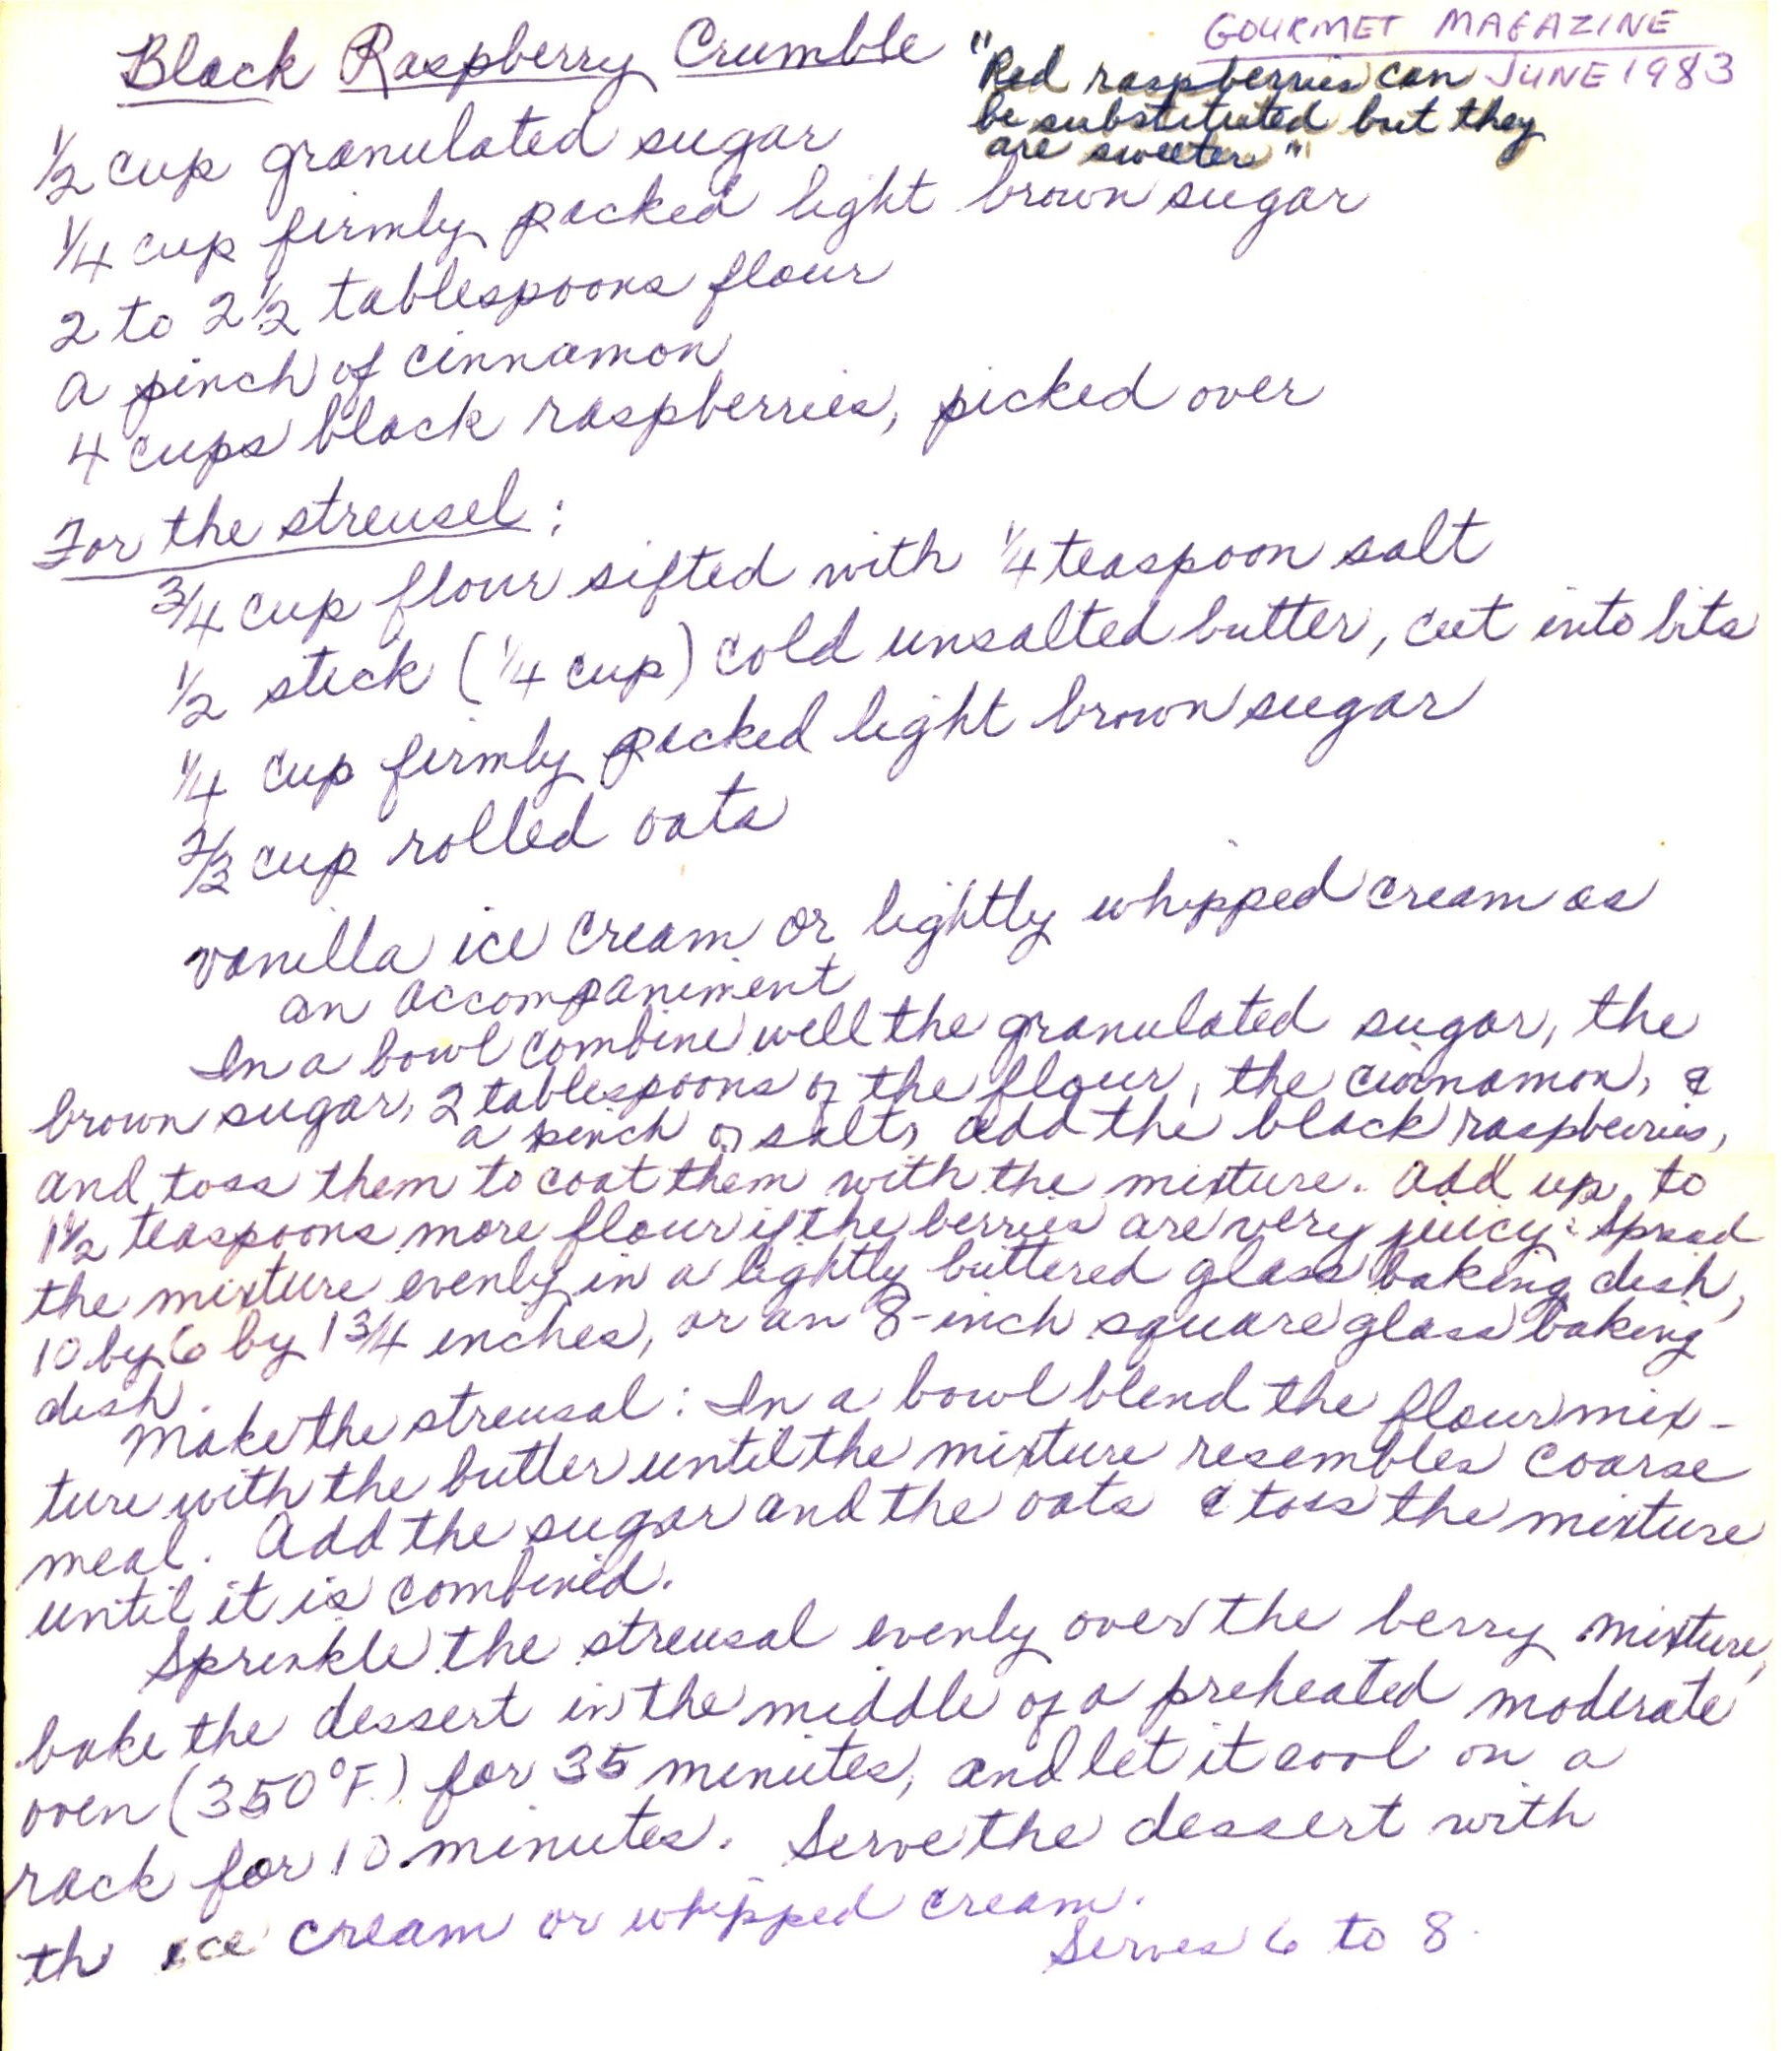 Black Raspberry Crumble
GOURMET MAGAZINE
JUNE 1983
"Red raspberries can
be substituted but they
are sweeter"
1/2 cup granulated sugar
1/4 cup firmly packed light brown sugar
2 to 2 1/2 tablespoons flour
a pinch of cinnamon
4 cups black raspberries, picked over
For the streusel:
3/4 cup flour sifted with 1/4 teaspoon salt
1/2 stick (1/4 cup) cold unsalted butter, cut into bits
1/4 cup firmly packed light brown sugar
2/3 cup rolled oats
vanilla ice cream or lightly whipped cream as
an accompaniment
In a bowl combine well the granulated sugar, the
brown sugar, 2 tablespoons of the flour, the cinnamon, &
a pinch of salt, add the black raspberries,
and toss them to coat them with the mixture. Add up to
1 1/2 teaspoons more flour if the berries are very juicy. Spread
the mixture evenly in a lightly buttered glass baking dish,
10 by 6 by 1 3/4 inches, or an 8-inch square glass baking
dish.
Make the streusal: In a bowl blend the flour mix-
ture with the butter until the mixture resembles coarse
meal. Add the sugar and the oats & toss the mixture
until it is combined.
Sprinkle the streusal evenly over the berry mixture,
bake the dessert in the middle of a preheated moderate
oven (350°F.) for 35 minutes, and let it cool on a
rack for 10 minutes. Serve the dessert with
th ice cream or whipped cream.
Serves 6 to 8.